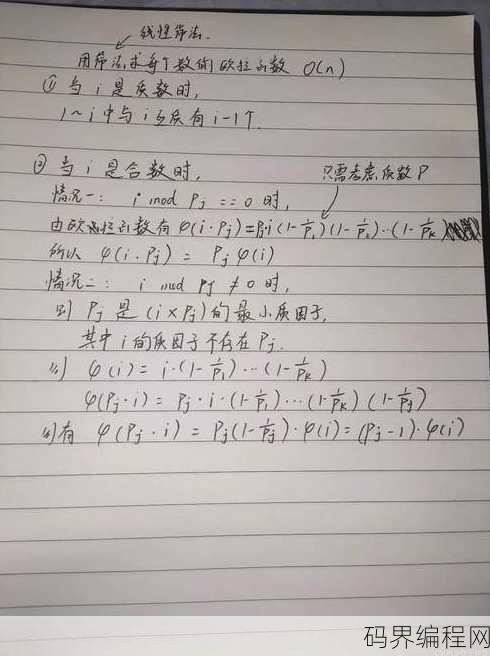 线性筛法.
用筛法求每个数的欧拉函数 O(n)
① 当 i 是质数时,
1~i 中与 i 互质有 i-1个.
② 当 i 是合数时,
只需考虑质数P
情况一: i mod Pj == 0 时,
由欧拉函数有 φ(i·Pj)=Pj·i(1-1/P₁)(1-1/P₂)…(1-1/Pk)
所以 φ(i·Pj) = Pj φ(i)
情况二: i mod Pj ≠ 0 时,
则 Pj 是 (i×Pj) 的最小质因子,
其中 i 的质因子不存在 Pj.
则 φ(i) = i·(1-1/P₁)…(1-1/Pk)
φ(Pj·i) = Pj·i·(1-1/P₁)…(1-1/Pk)(1-1/Pj)
则有 φ(Pj·i) = Pj(1-1/Pj)·φ(i) = (Pj-1)·φ(i)
码界编程网